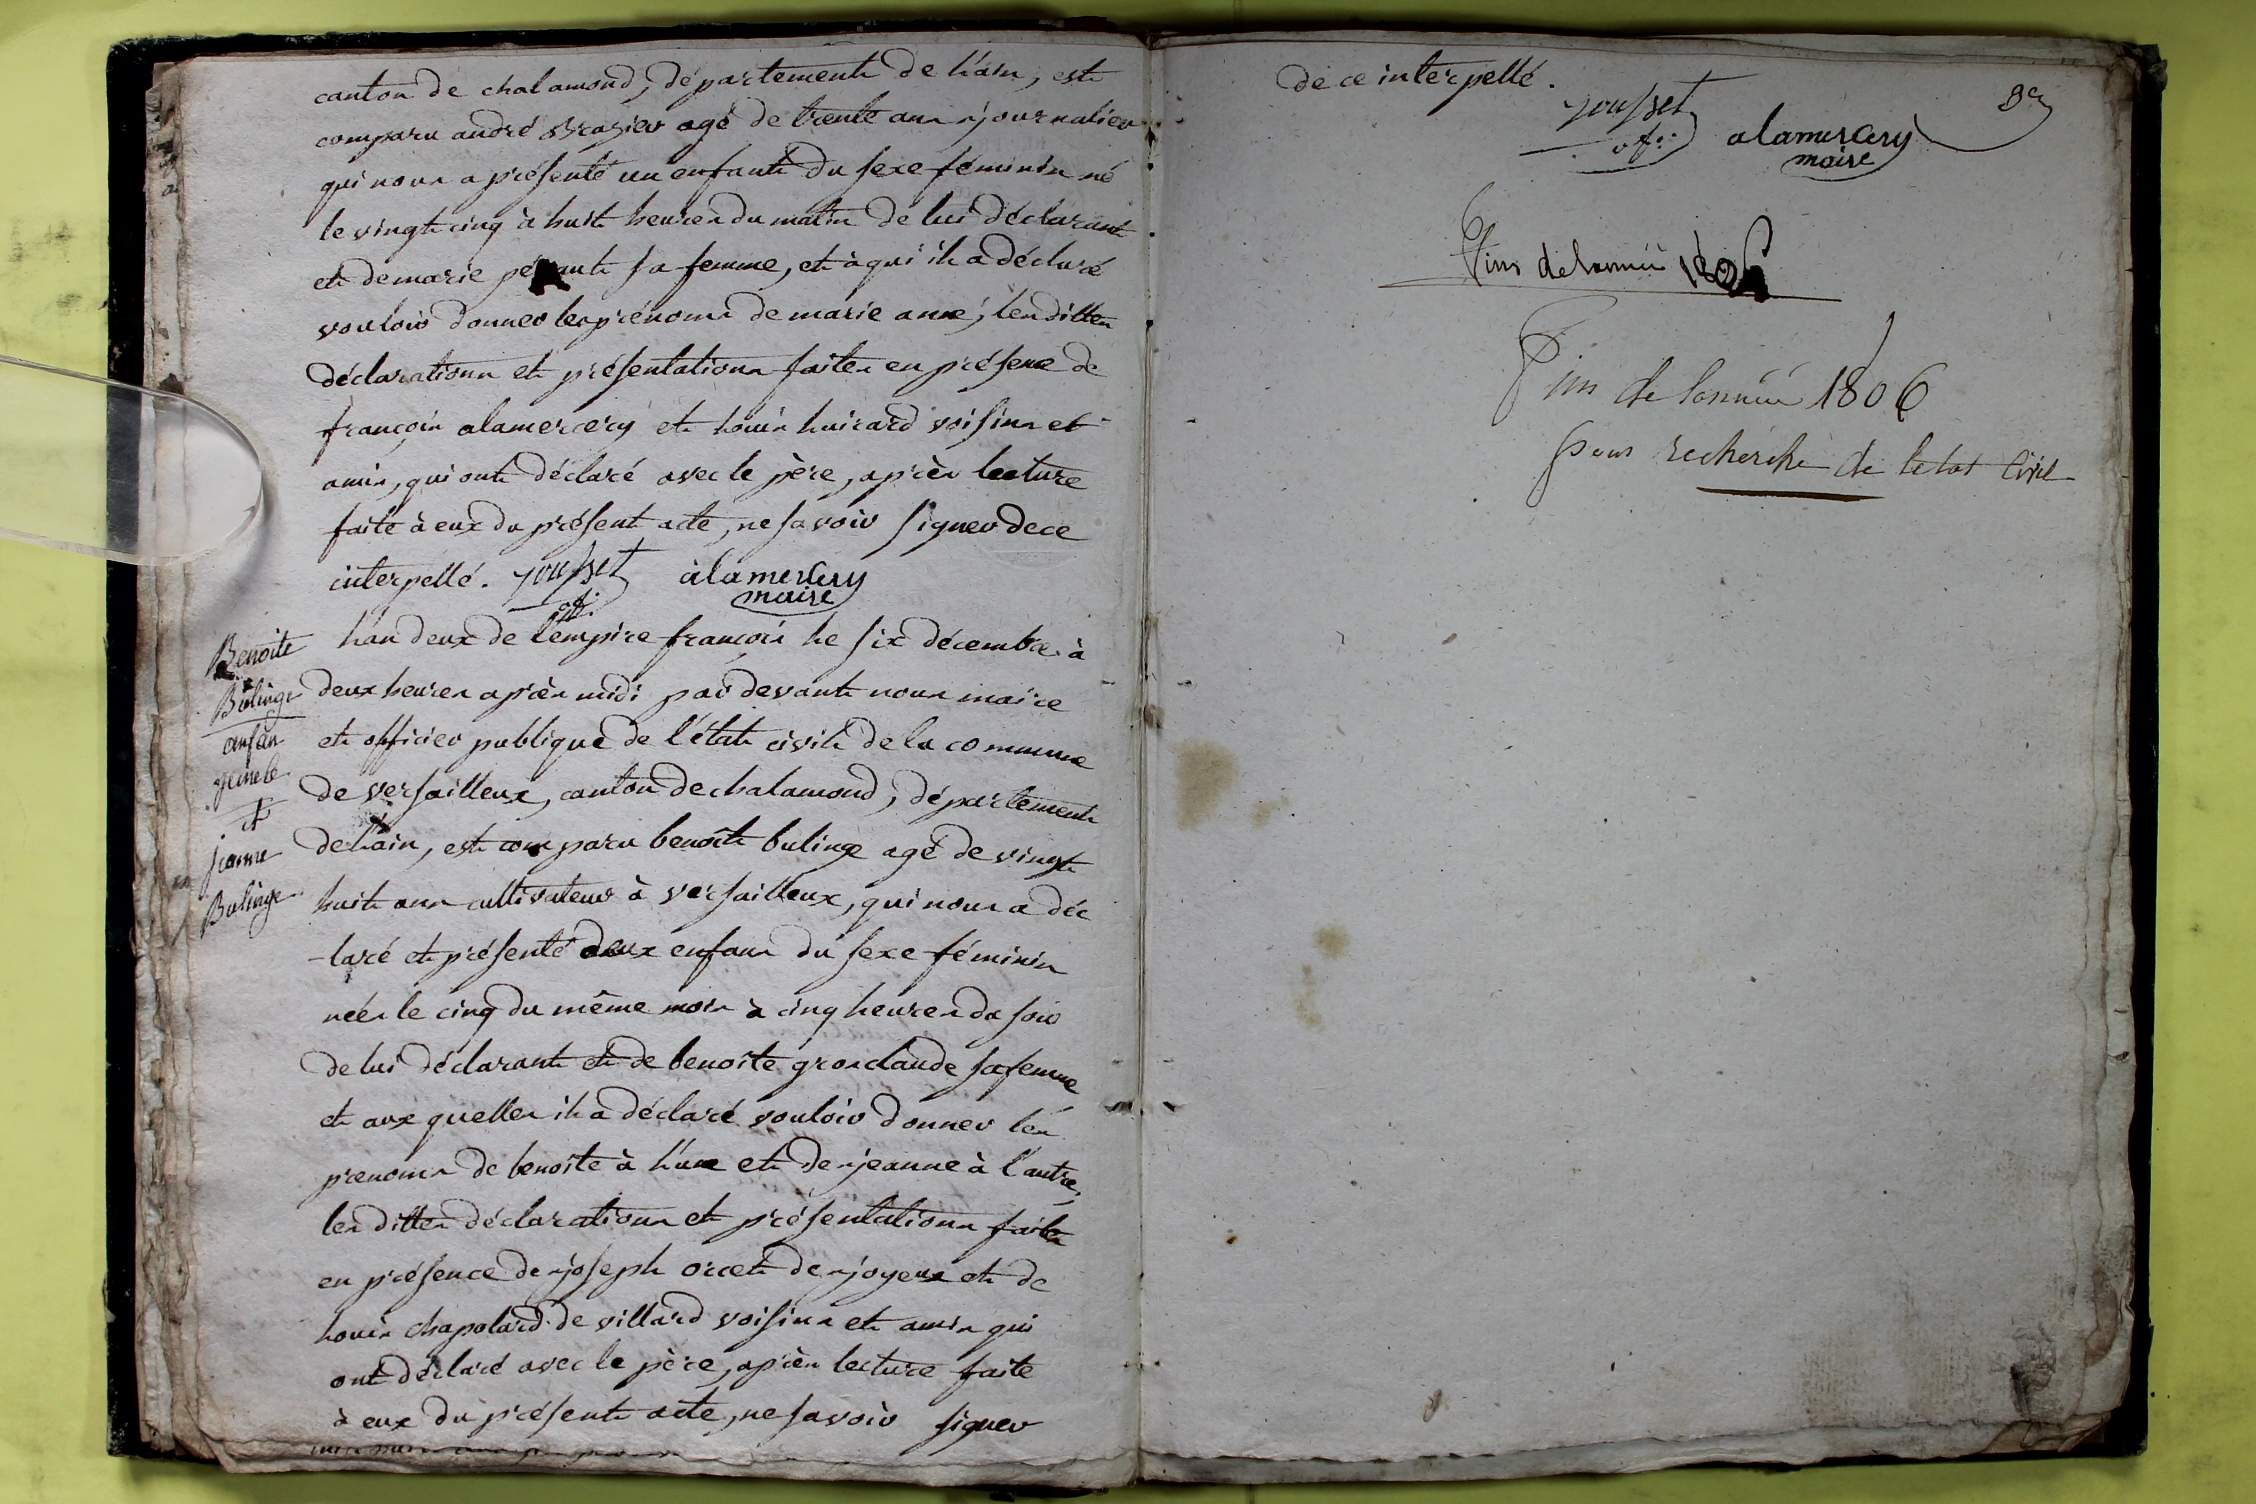 canton de chalamond, département de l'ain, est
comparu andré brasier agé de trente ans journalier
qui nous a présenté un enfant du sexe féminin né
le vingt cinq à huit heures du matin de lui déclarant
et de marie sa femme, et à qui il a déclaré
vouloir donner les prénoms de marie anne, les dittes
déclarations et présentations faites en présence de
françois alamercery et louis huirard voisins et
amis, qui ont déclaré avec le père, après lecture
faite à eux du présent acte, ne savoir signer de ce
interpellé. Jousset alamercery
maire
Benoite
Bulinge
enfan
jumele
et
jeanne
Bulinge
l'an deux de l'empire françois le six décembre à
deux heures après midi par devant nous maire
et officier publique de l'état civil de la commune
de versailleux, canton de chalamond, département
de l'ain, est comparu benoît bulinge agé de vingt
huit ans cultivateur à versailleux, qui nous a déc
-laré et présenté deux enfans du sexe féminin
nées le cinq du même mois à cinq heures du soir
de lui déclarant et de benoite grosclaude sa femme
et aux quelles il a déclaré vouloir donner les
prenoms de benoite à l'une et de jeanne à l'autre,
les dittes déclarations et présentations faites
en présence de joseph orcet de joyeux et de
louis chapolard de villard voisins et amis qui
ont déclaré avec le père, après lecture faite
à eux du présent acte, ne savoir signer
de ce interpellé.
Jousset
alamercery
maire
Fins de lannée 1806
Fin de lannée 1806
pour recherche de letat Civil